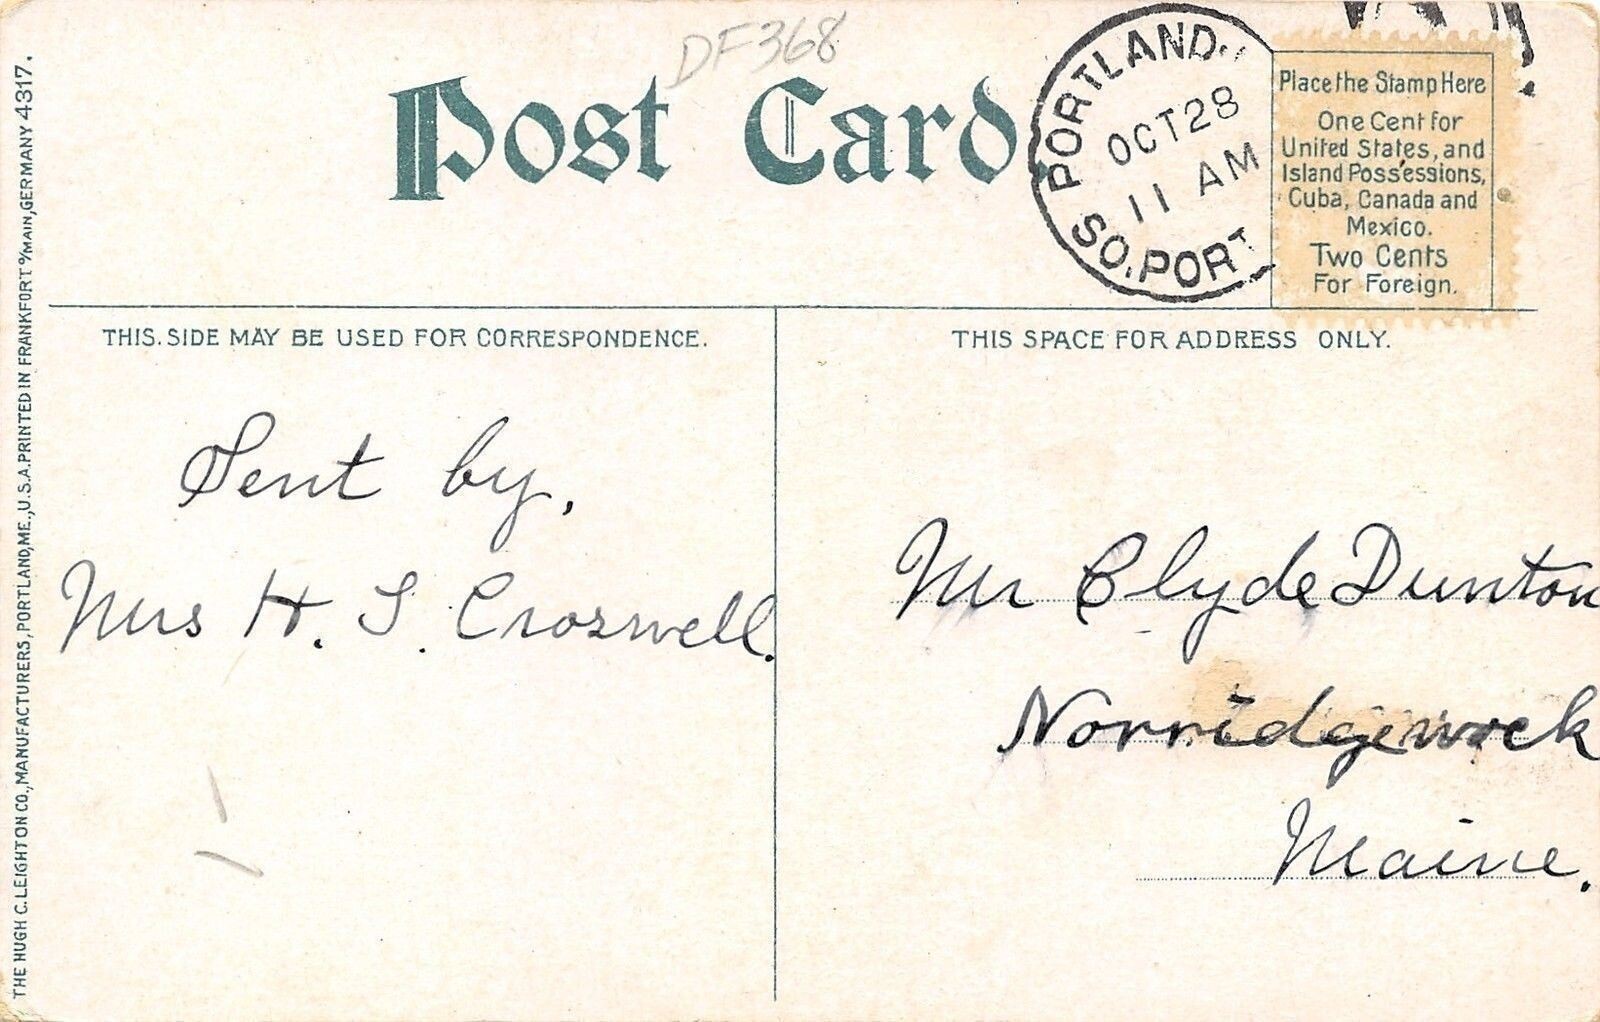 DF368
Post Card
PORTLAND
OCT 28
11 AM
SO. PORT
Place the Stamp Here
One Cent for
United States, and
Island Possessions,
Cuba, Canada and
Mexico.
Two Cents
For Foreign.
THIS SIDE MAY BE USED FOR CORRESPONDENCE.
THIS SPACE FOR ADDRESS ONLY.
Sent by,
Mrs H. S. Croswell.
Mr Clyde Dunton
Norridgewock
Maine.
THE HUGH C. LEIGHTON CO., MANUFACTURERS, PORTLAND, ME., U.S.A. PRINTED IN FRANKFORT o/MAIN, GERMANY 4317.